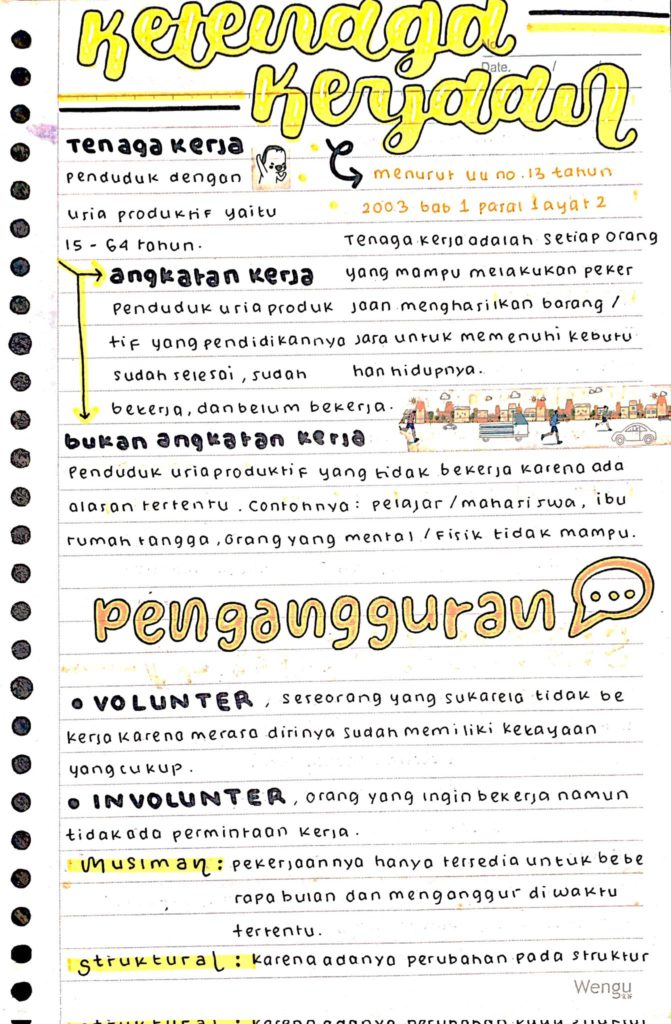 Ketenaga
Kerjaan
No
Date. / /
Tenaga Kerja
penduduk dengan
usia produktif yaitu
15 - 64 tahun.
menurut uu no. 13 tahun
2003 bab 1 pasal 1 ayat 2
Tenaga kerja adalah setiap orang
yang mampu melakukan peker
jaan menghasilkan barang /
jasa untuk memenuhi kebutu
han hidupnya.
angkatan kerja
Penduduk usia produk
tif yang pendidikannya
sudah selesai, sudah
bekerja, dan belum bekerja.
bukan angkatan kerja
Penduduk usia produktif yang tidak bekerja karena ada
alasan tertentu. Contohnya: pelajar / mahasiswa, ibu
rumah tangga, orang yang mental / fisik tidak mampu.
pengangguran
• VOLUNTER, seseorang yang sukarela tidak be
kerja karena merasa dirinya sudah memiliki kekayaan
yang cukup.
• INVOLUNTER, orang yang ingin bekerja namun
tidak ada permintaan kerja.
Musiman : pekerjaannya hanya tersedia untuk bebe
rapa bulan dan menganggur di waktu
tertentu.
Struktural : karena adanya perubahan pada struktur
Wengu